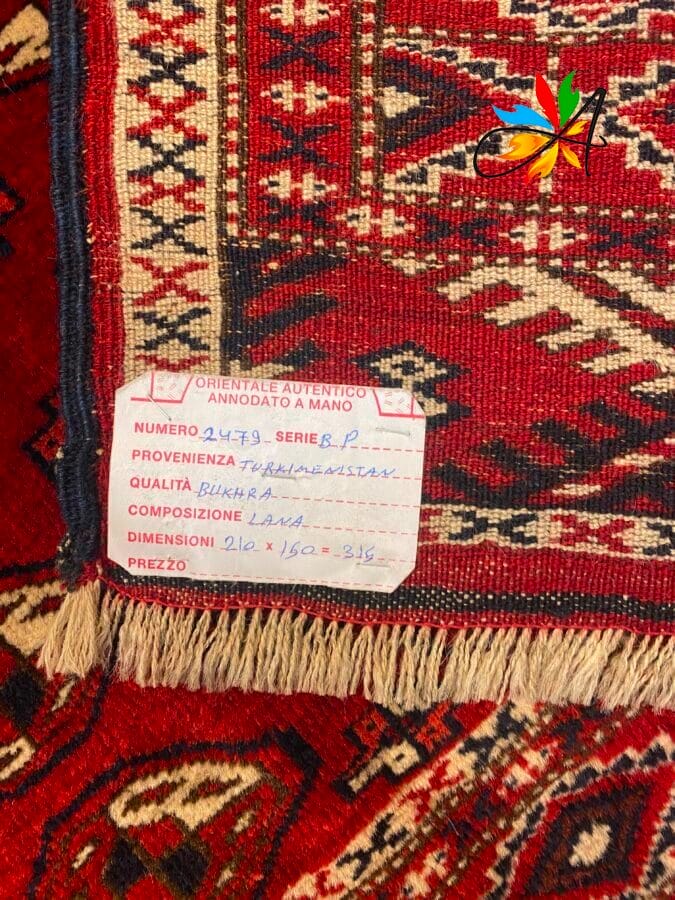 ORIENTALE AUTENTICO
ANNODATO A MANO
NUMERO 2479 SERIE B P
PROVENIENZA TURKIMENISTAN
QUALITÀ BUKHRA
COMPOSIZIONE LANA
DIMENSIONI 210 x 150 = 315
PREZZO
A